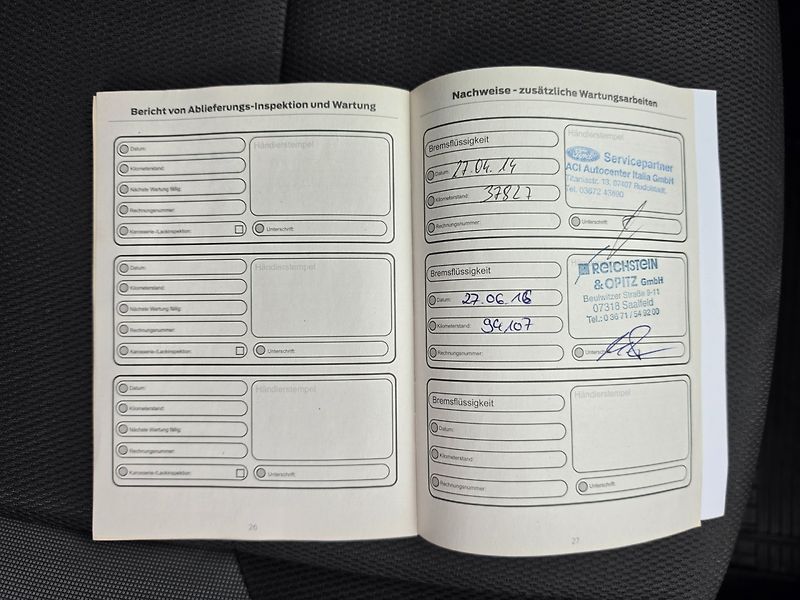 Bericht von Ablieferungs-Inspektion und Wartung
Datum:
Kilometerstand:
Nächste Wartung fällig:
Rechnungsnummer:
Karosserie-/Lackinspektion:
Händlerstempel
Unterschrift:
Datum:
Kilometerstand:
Nächste Wartung fällig:
Rechnungsnummer:
Karosserie-/Lackinspektion:
Händlerstempel
Unterschrift:
Datum:
Kilometerstand:
Nächste Wartung fällig:
Rechnungsnummer:
Karosserie-/Lackinspektion:
Händlerstempel
Unterschrift:
26
Nachweise - zusätzliche Wartungsarbeiten
Bremsflüssigkeit
Datum: 17.04.14
Kilometerstand: 37827
Rechnungsnummer:
Händlerstempel
Ford Servicepartner
ACI Autocenter Italia GmbH
13, 07407 Rudolstadt
Tel. 03672 43690
Unterschrift:
Bremsflüssigkeit
Datum: 27.06.16
Kilometerstand: 94107
Rechnungsnummer:
REICHSTEIN
& OPITZ GmbH
Beulwitzer Straße 9-11
07318 Saalfeld
Tel.: 0 36 71 / 54 92 00
Unterschrift:
Bremsflüssigkeit
Datum:
Kilometerstand:
Rechnungsnummer:
Händlerstempel
Unterschrift:
27